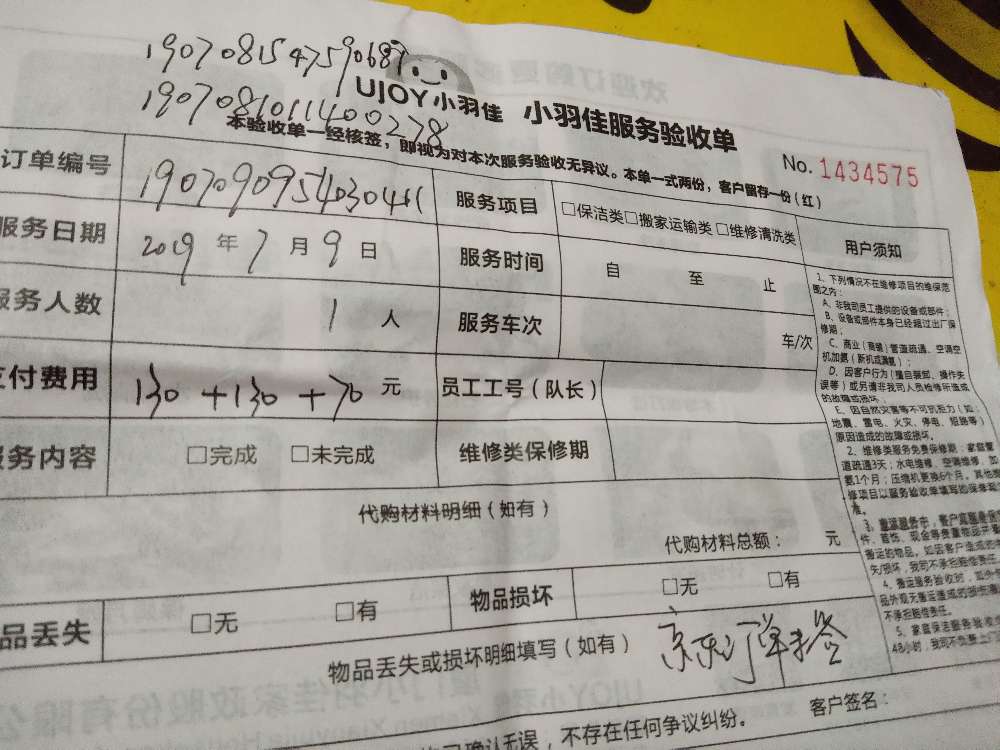 19070815475906​87
1907081011400278
UJOY小羽佳 小羽佳服务验收单
本验收单一经核签，即视为对本次服务验收无异议。本单一式两份，客户留存一份（红）
No. 1434575
订单编号 1907090954030411 服务项目 □保洁类□搬家运输类□维修清洗类 用户须知
服务日期 2019 年 7 月 9 日 服务时间 自 至 止
服务人数 1 人 服务车次 车/次
支付费用 130+130+70 元 员工工号（队长）
服务内容 □完成 □未完成 维修类保修期
代购材料明细（如有）
代购材料总额： 元
品丢失 □无 □有 物品损坏 □无 □有
物品丢失或损坏明细填写（如有）
京东订单免签
客户签名：
确认无误，不存在任何争议纠纷。
1、下列情况不在维修项目的维保范
围之内：
A、非我司员工提供的设备或部件；
B、设备或部件本身已经超过出厂保
修期；
C、商业（商铺）管道疏通、空调空
机加氨（新机或漏氨）；
D、因客户行为（擅自装卸、操作失
误等）或另请非我司人员检修所造成
的故障或损坏；
E、因自然灾害等不可抗拒力（如：
地震、雷电、火灾、停电、短路等）
原因造成的故障或损坏。
2、维修类服务免费保修期：家庭管
道疏通3天；水电维修、空调维修、加
氨1个月；压缩机更换6个月。其他
修项目以服务验收单填写的保条
准。
3、搬运服务中，客户应随身保
件、首饰、现金等贵重物品
搬运的物品。如因客户造成
失/损坏，我司不承担赔偿责任
4、搬运服务验收时，如外
品外观无搬运造成的损伤
不承担赔偿责任。
5、家庭保洁服务验收
48小时，我司不负责上门